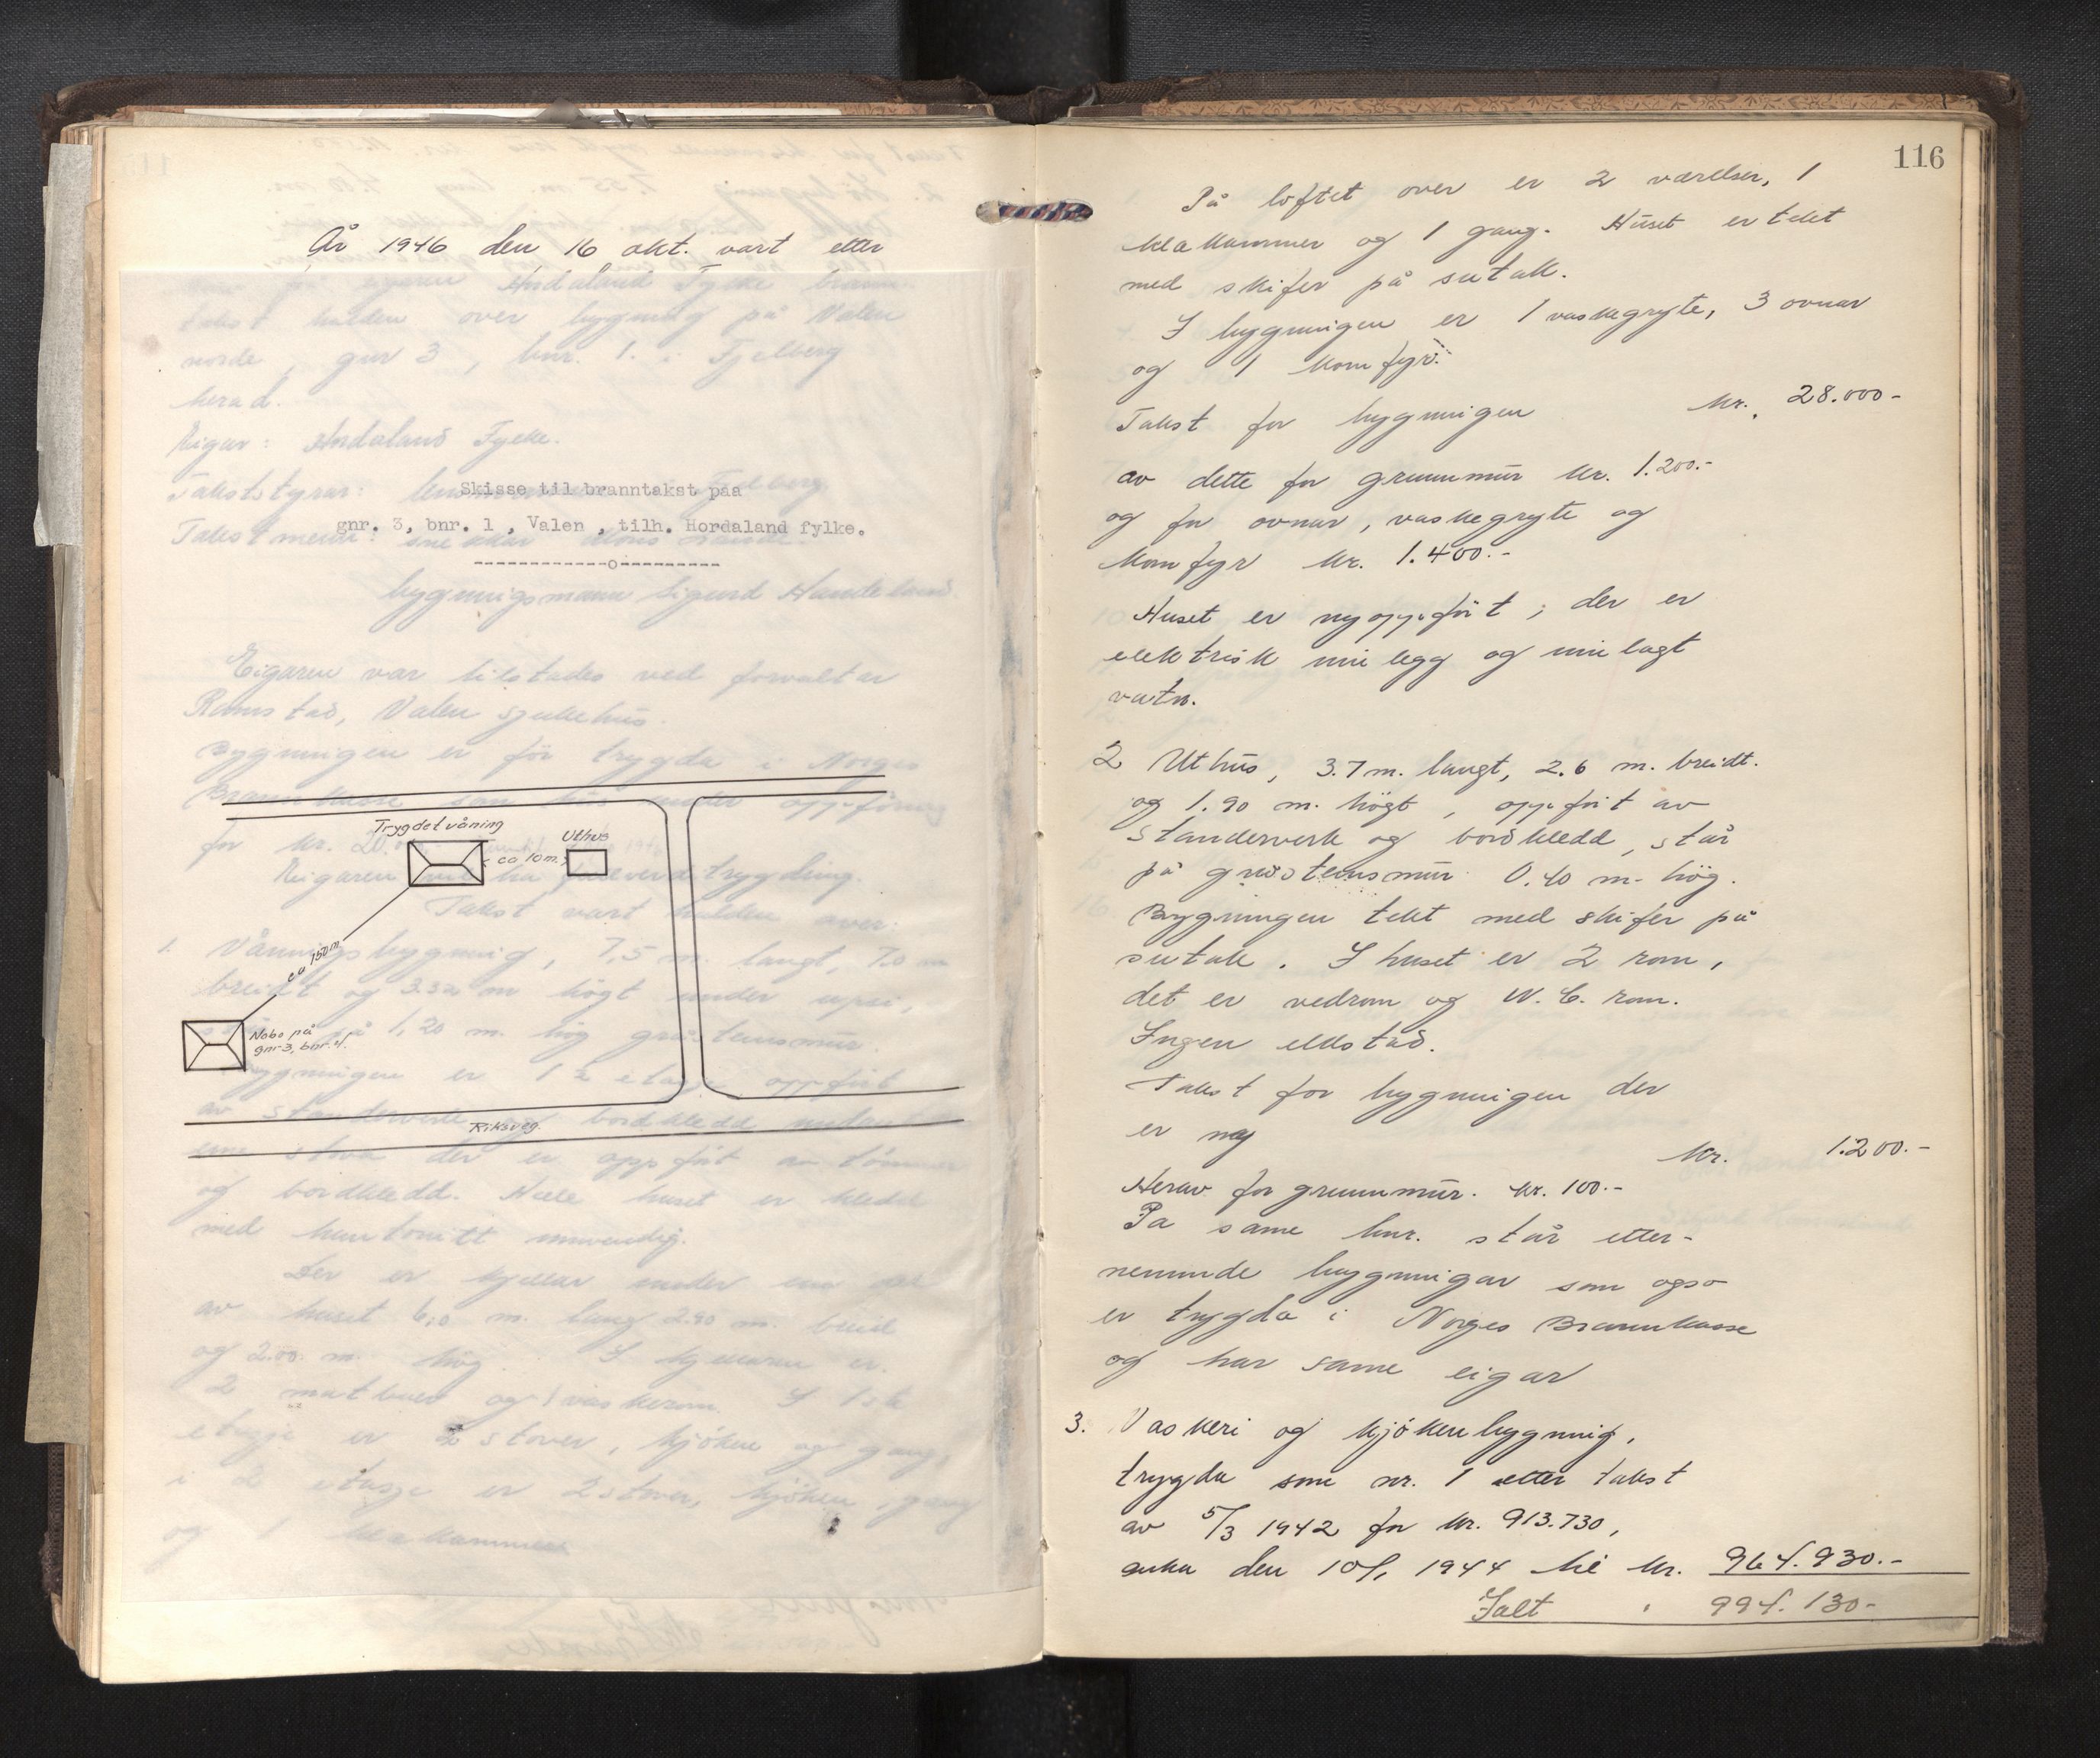 År 1946 den 16 okt. vart etter
Hordaland Fylke brann-
takst halden over bygning på Valen
nordre, gnr 3, bnr. 1. i Fjelberg
herad.
Eigar: Hordaland Fylke.
Takststyrar: Fjelberg.
Skisse til branntakst paa
gnr. 3, bnr. 1, Valen, tilh. Hordaland fylke.
Takstmenn: snekkar
------------o----------
bygningsmann Sigurd Handeland.
Eigaren var tilstades ved forvaltar
Rimstad, Valen sjukehus.
Bygningen er för trygda i Norges
Brannkasse som hus under oppföring
for kr. 20.
Trygdet våning
Uthus
ca 10 m.
Eigaren vil ha fullverdetrygding.
Takst vart halden over:
1. Våningsbygning, 7,5 m. langt, 7,0 m
ca 150 m
breidt og 3.32 m högt under upsi,
på 1,20 m. hög gråsteinsmur.
Nabo på
gnr 3, bnr. 4.
Bygningen er 1 ½ etasje oppfört
av standerverk og bordkledd undan
Riksveg.
ein stova der er oppfört av tömmer
og bordkledd. Heile huset er kledd
med huntonitt innvendig.
Der er kjellar under ein del
av huset 6,0 m. lang 2.90 m. breid
og 2.00 m. hög. I kjellaren er
2 matbuer og 1 vaskerom. I 1ste
etasje er 2 stover, kjöken og gang,
i 2 etasje er 2 stover, kjöken, gang
og 1 klekammers
116
På loftet over er 2 værelser, 1
klekammer og 1 gang. Huset er tekt
med skifer på sutak.
I bygningen er 1 vaskegryte, 3 ovnar
og 1 komfyr.
Takst for bygningen kr. 28.000-
av dette for grunnmur kr. 1.200.-
og for ovnar, vaskegryte og
komfyr kr. 1.400.-
Huset er nyoppfört; der er
elektrisk innlegg og innlagt
vatn.
2 Uthus, 3.7 m. langt, 2.6 m. breidt.
og 1.90 m. högt, oppfört av
Standerverk og bordkledd, står
på gråsteinsmur 0.40 m. hög.
Bygningen tekt med skifer på
sutak. I huset er 2 rom,
det er vedrom og W.C. rom.
Ingen eldstad.
Takst for bygningen der
er ny kr. 1.200.-
Herav for grunnmur. kr. 100.-
På same bnr. står etter-
nemnde bygningar som også
er trygda i Norges Brannkasse
og har same eigar
3. Vaskeri og kjökenbygning,
trygda som nr. 1 etter takst
av 5/3 1942 for kr. 913.730,
auka den 10/1 1944 til kr. 964.930.-
Ialt " 994.130-